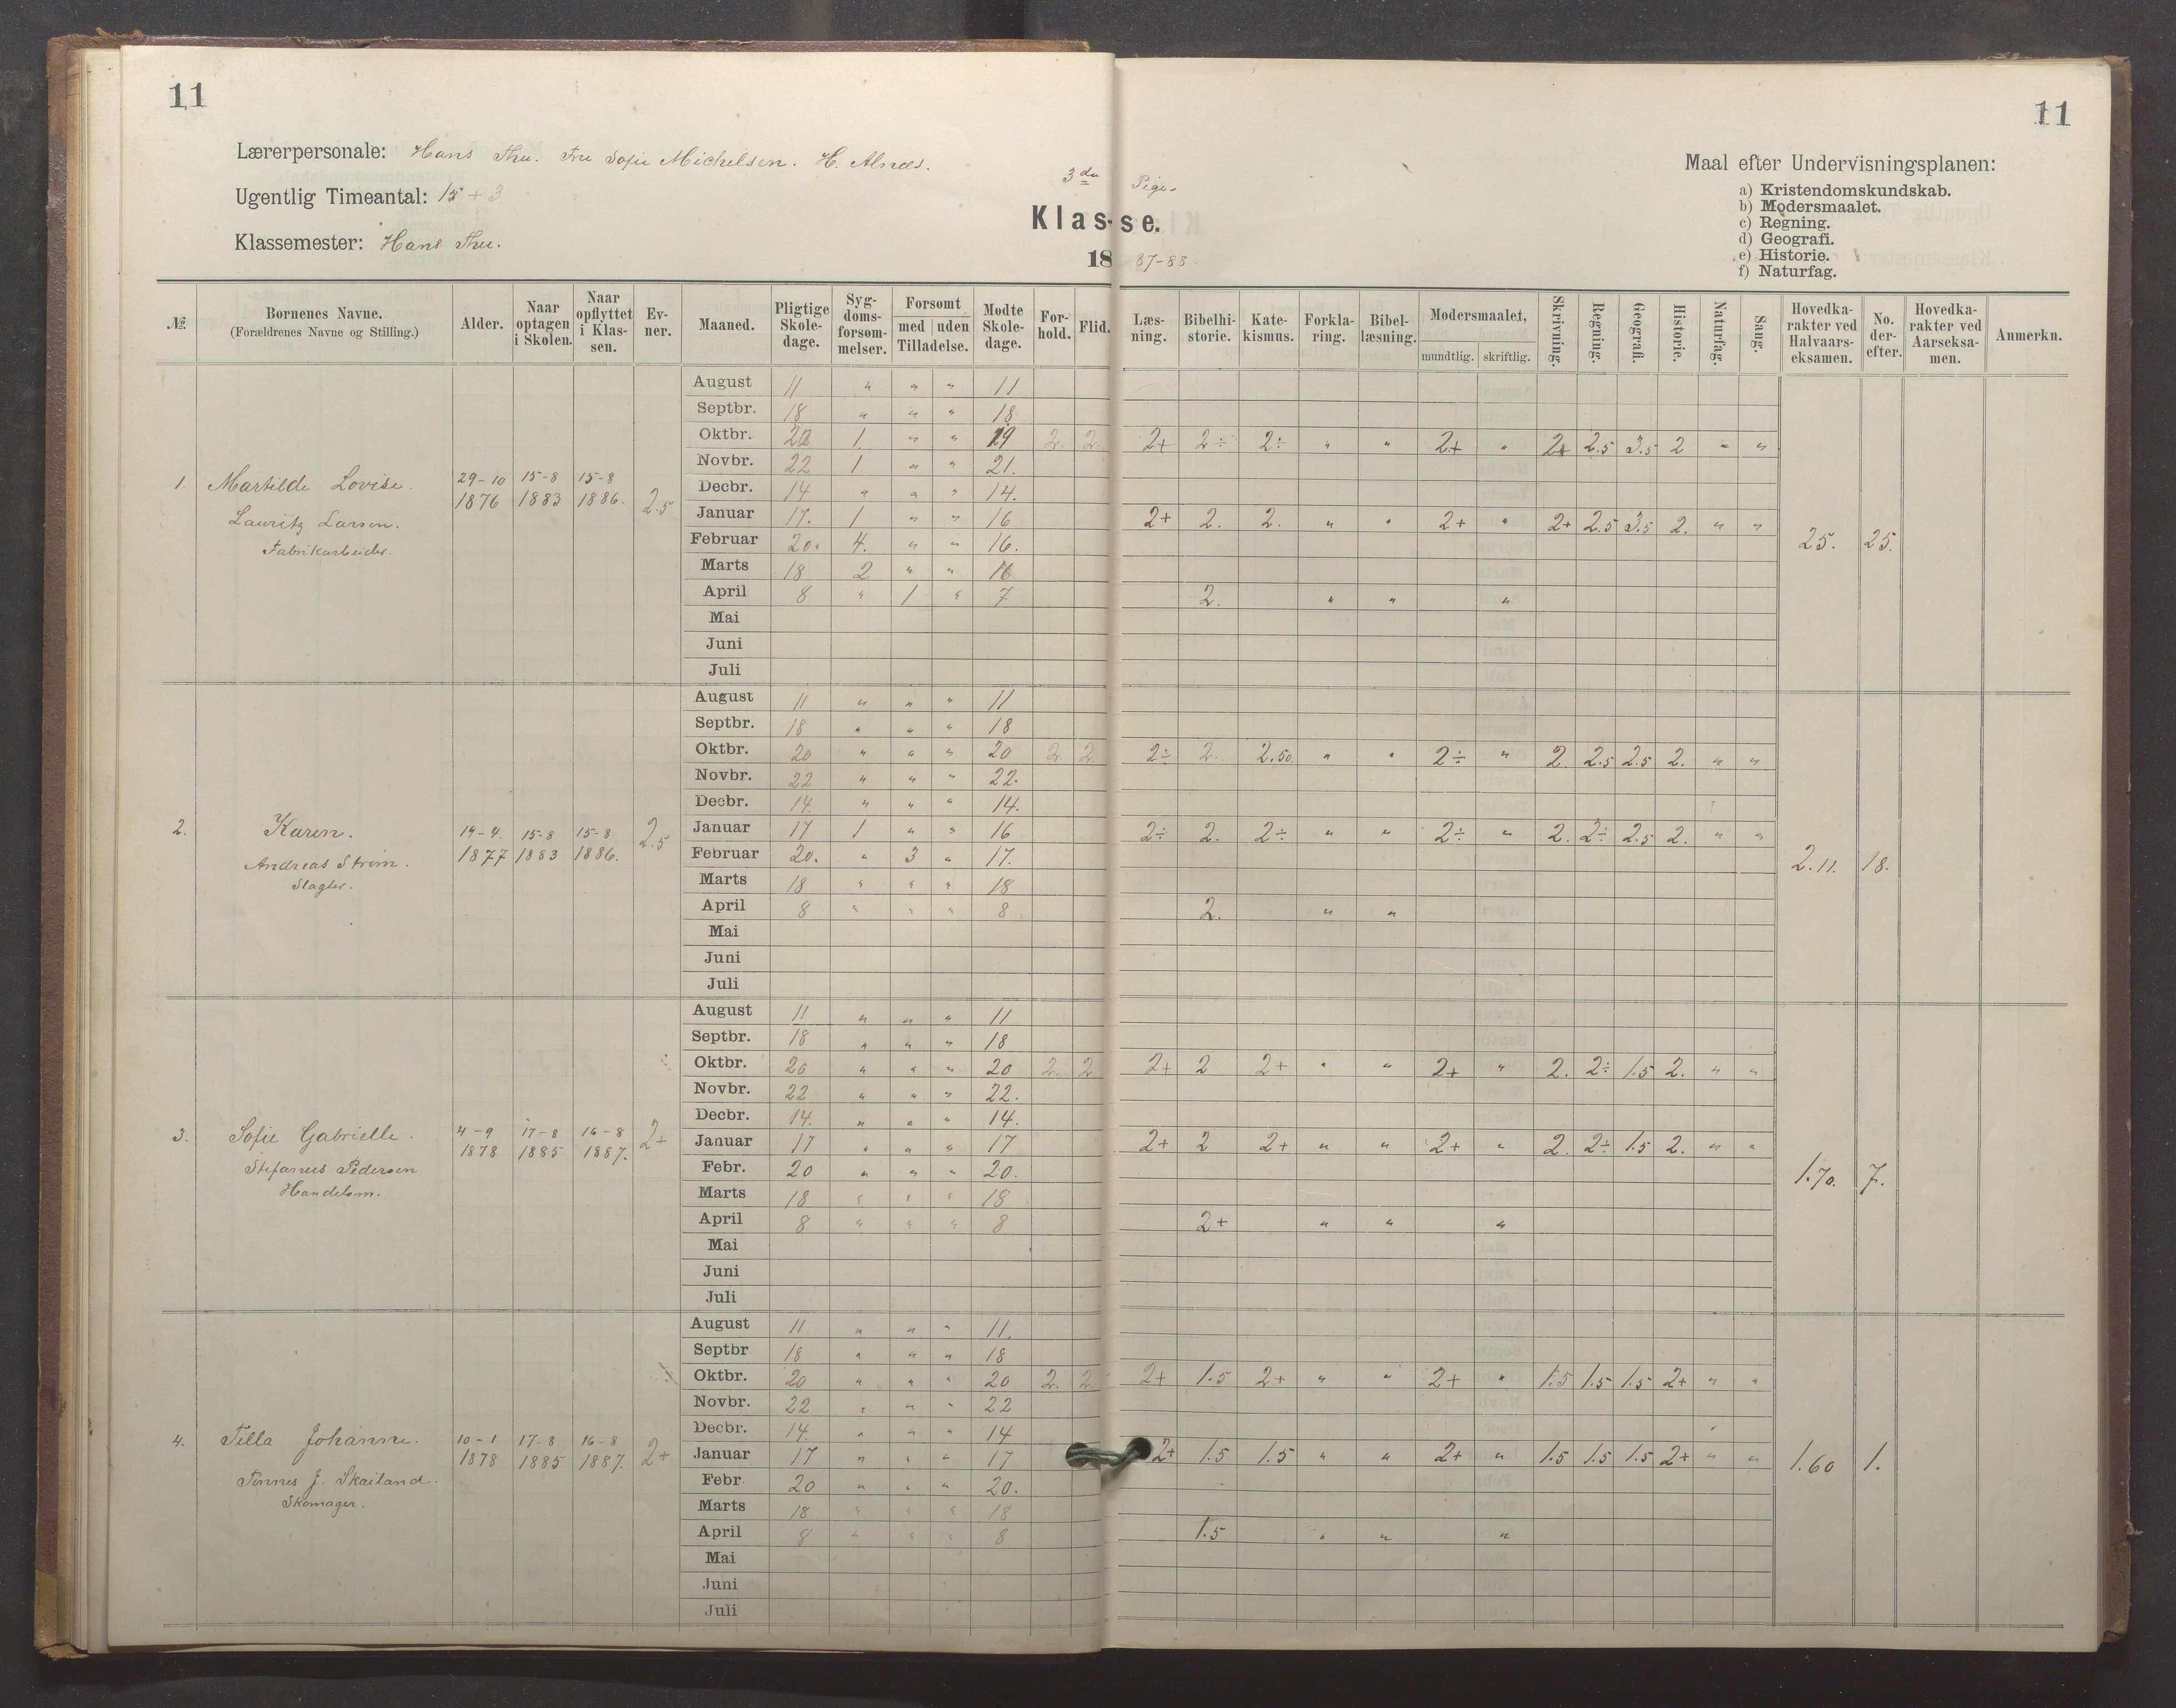 11
11
Lærerpersonale: Hans Thu. Fru Sofie Michelsen. H. Alnæs.
Ugentlig Timeantal: 15 + 3
Klassemester: Hans Thu.
3die Pige-
Klasse.
18 87-88.
Maal efter Undervisningsplanen:
a) Kristendomskundskab.
b) Modersmaalet.
c) Regning.
d) Geografi.
e) Historie.
f) Naturfag.
№ | Bornenes Navne. (Forældrenes Navne og Stilling.) | Alder. | Naar optagen i Skolen. | Naar opflyttet i Klassen. | Evner. | Maaned. | Pligtige Skoledage. | Sygdomsforsommelser. | Forsomt med | uden Tilladelse. | Modte Skoledage. | Forhold. | Flid. | Læsning. | Bibelhistorie. | Katekismus. | Forklaring. | Bibellæsning. | Modersmaalet, mundtlig. | skriftlig. | Skrivning. | Regning. | Geografi. | Historie. | Naturfag. | Sang. | Hovedkarakter ved Halvaarseksamen. | No. derefter. | Hovedkarakter ved Aarseksamen. | Anmerkn.
1. Martilde Lovise. 29-10 1876 15-8 1883 15-8 1886. 2.5
Lauritz Larsen.
Fabrikarbeider.
August 11 " " " 11
Septbr. 18 " " " 18
Oktbr. 20 1 " " 19 2. 2. 2+ 2÷ 2÷ " " 2+ " 2+ 2.5 3.5 2 " "
Novbr. 22 1 " " 21.
Decbr. 14 " " " 14.
Januar 17. 1 " " 16 2+ 2. 2. " " 2+ " 2+ 2.5 3.5 2. " "
Februar 20. 4. " " 16.
Marts 18 2 " " 16
April 8 " 1 " 7 2. " " "
Mai
Juni
Juli
25. 25.
2. Karen. 19-4. 1877 15-8 1883 15-8 1886. 2.5
Andreas Strøm.
Slagter.
August 11 " " " 11
Septbr. 18 " " " 18
Oktbr. 20 " " " 20 2. 2 2÷ 2. 2.50. " " 2÷ " 2. 2.5 2.5 2. " "
Novbr. 22 " " " 22.
Decbr. 14. " " " 14.
Januar 17 1 " " 16 2÷ 2. 2÷ " " 2÷ " 2. 2÷ 2.5 2. " "
Februar 20. " 3 " 17.
Marts 18 " " " 18
April 8 " " " 8 2. " "
Mai
Juni
Juli
2.11. 18.
3. Sofie Gabrielle. 4-9 1878 17-8 1885 16-8 1887. 2+
Stefanus Pedersen
Handelsm.
August 11 " " " 11
Septbr. 18 " " " 18
Oktbr. 20 " " " 20 2. 2 2+ 2 2+ " " 2+ " 2. 2÷ 1.5 2. " "
Novbr. 22 " " " 22.
Decbr. 14. " " " 14.
Januar 17 " " " 17 2+ 2 2+ " " 2+ " 2. 2÷ 1.5 2. " "
Febr. 20 " " " 20.
Marts 18 " " " 18
April 8 " " " 8 2+ " " "
Mai
Juni
Juli
1.70. 7.
4. Tilla Johanne. 10-1 1878 17-8 1885 16-8 1887. 2+
Tønnes J. Skailand.
Skomager.
August 11 " " " 11.
Septbr 18 " " " 18
Oktbr. 20 " " " 20 2. 2 2+ 1.5 2+ " " 2+ " 1.5 1.5 1.5 2+ " "
Novbr. 22 " " " 22
Decbr. 14. " " " 14
Januar 17 " " " 17 2+ 1.5 1.5 " " 2+ " 1.5 1.5 1.5 2+ " "
Febr. 20 " " " 20.
Marts 18 " " " 18
April 8 " " " 8 1.5 " " "
Mai
Juni
Juli
1.60 1.